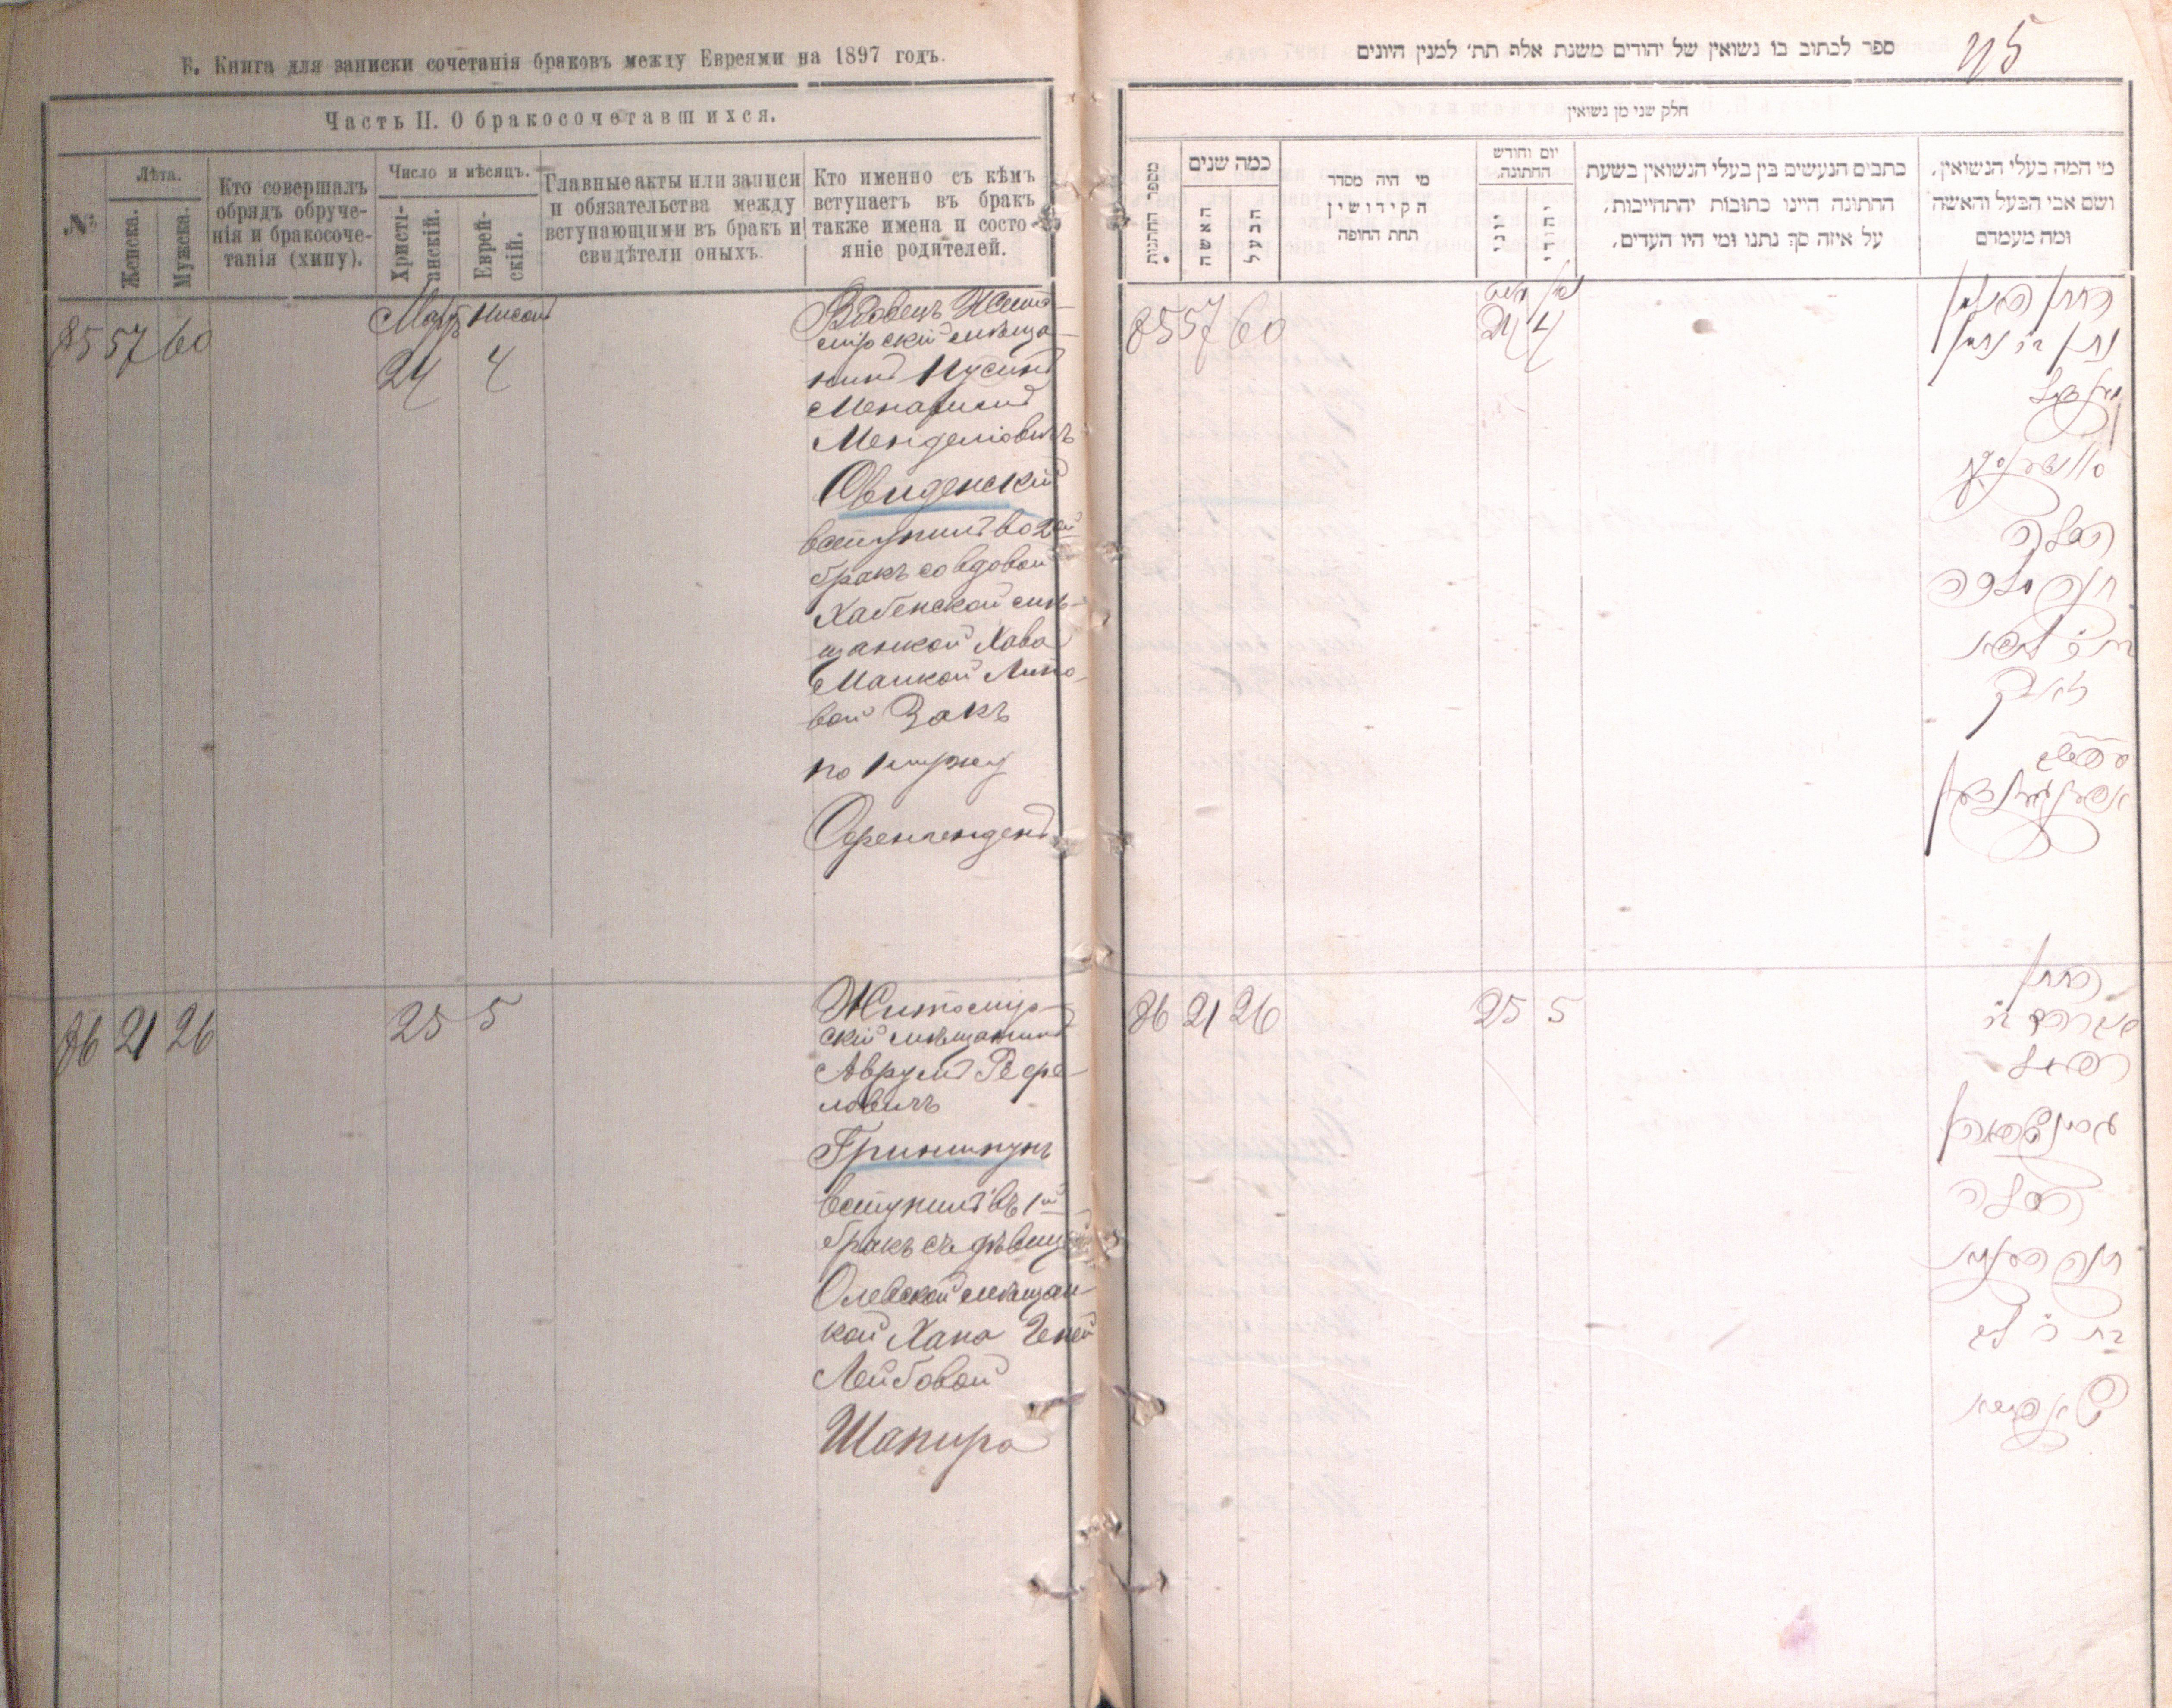 Б. Книга для записки сочетанія браковъ между Евреями на 1897 годъ.
Часть II. О бракосочетавшихся.
№
Лѣта.
Женска.
Мужска.
Кто совершалъ
обрядъ обруче-
нія и бракосоче-
танія (хипу).
Число и мѣсяцъ.
Христі-
анскій.
Еврей-
скій.
Главные акты или записи
и обязательства между
вступающими въ бракъ и
свидѣтели оныхъ.
Кто именно съ кѣмъ
вступаетъ въ бракъ
также имена и состо-
яніе родителей.
85 57 60
Мартъ Нисонъ
24 4
Вдовецъ Жито-
мірскій мѣща-
нинъ Нусинъ
Менделіовичъ
Овиденскій
вступилъ во 2ой
бракъ со вдовой
Хабенской мѣ-
щанкой Хава
Липо-
вой Закъ
по 1 мужу
86 21 26
25 5
Житомір-
скій мѣщанинъ
Аврумъ Рефе-
ловичъ
Гриншпунъ
вступилъ въ 1ый
бракъ съ дѣвицей
Олевской мѣщан-
кой Хана Геней
Лейбовой
Шапиро
ספר לכתוב בו נשואין של יהודים משנת אלף תת׳ למנין היונים
חלק שני מן נשואין
מספר החתונות
כמה שנים
האשה
הבעל
מי היה מסדר
הקידושין
תחת החופה
יום וחודש
החתונה
יוני
יהודי
כתבים הנעשים בין בעלי הנשואין בשעת
החתונה היינו כתובות יהתחייבות,
על איזה סך נתנו ומי היו העדים,
מי המה בעלי הנשואין,
ושם אבי הבעל והאשה
ומה מעמדם
85 57 60
24 4
החתן האלמן
נתן
הכלה
86 21 26
25 5
החתן
אברהם ב״ר
רפאל
גרינשפאהן
הכלה
חנה הענא
בת ר׳ ליב
שאפירא